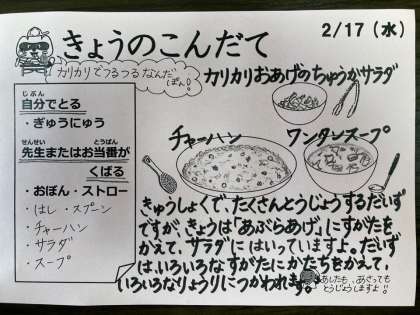 2/17（水）
きょうのこんだて
カリカリでつるつるなんだ
ぽん！
カリカリおあげのちゅうかサラダ
じぶん
自分でとる
・ぎゅうにゅう
せんせい とうばん
先生またはお当番が
くばる
・おぼん・ストロー
・はし・スプーン
・チャーハン
・サラダ
・スープ
チャーハン
ワンタンスープ
きゅうしょくで、たくさんとうじょうするだいず
ですが、きょうは「あぶらあげ」にすがたを
かえて、サラダに はいっていますよ。だいず
は、いろいろな すがたにかたちをかえて、
いろいろなりょうりにつかわれます。
あしたも、あさっても
とうじょうしますよ！！